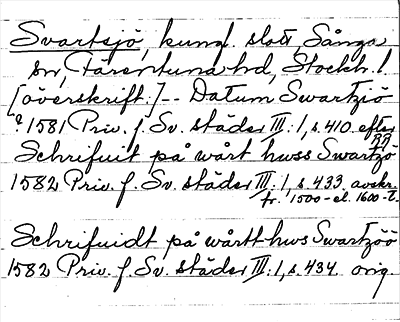 Svartsjö, kungl. slott, Sånga
sn, Färentuna hd, Stockh. l.
[överskrift:] -- Datum Swartziö
? 1581 Priv. f. Sv. städer III:1, s. 410. efter
Schrifuit på wårt hwss Swartzö
1582 Priv. f. Sv. städer III:1, s. 433. avskr.
fr. 1500- el. 1600-t.
Schrifuidt på wårtt hws Swartzöö
1582 Priv. f. Sv. städer III:1, s. 434. orig.